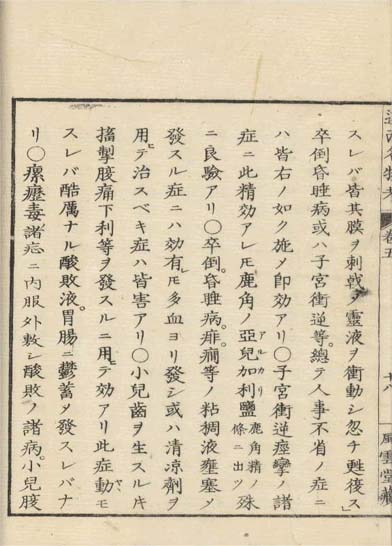 遠西名物考 卷五 十八 風雲堂藏
スレバ皆其膜ヲ刺戟シ靈液ヲ衝動シ忽チ甦復ス」
卒倒昏睡病或ハ子宮衝逆等。總テ人事不省ノ症ニ
ハ皆右ノ如ク施メ卽効アリ〇子宮衝逆痙攣ノ諸
症ニ此精効アレ𪜈鹿角ノ亞兒加利鹽鹿角精ノ條ニ出ツ殊
アルカリ
ニ良驗アリ〇卒倒。昏睡病。癇等ノ粘稠液壅塞メ
發スル症ニハ効有レ𪜈多血ヨリ發シ或ハ清凉劑ヲ
用テ治スベキ症ハ皆害アリ〇小兒齒ヲ生スルキ
搐掣腹痛下利等ヲ發スルニ用テ効アリ此症動モ
スレバ酷厲ナル酸敗液。胃腸ニ鬱蓄メ發スレバナ
リ〇瘰癧毒諸痣ニ内服外敷シ酸敗ノ諸病。小兒腹